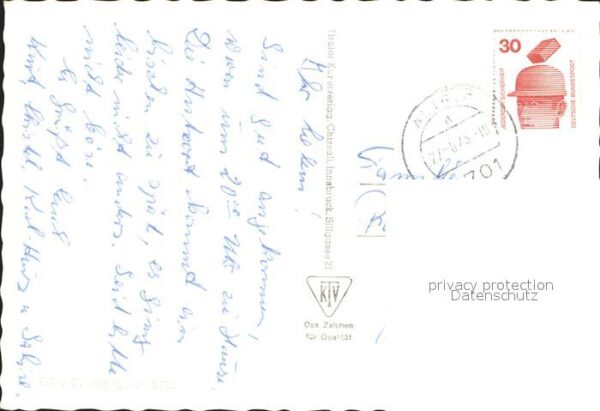 Ihr Lieben!
Sind gut angekommen,
waren um 20 Uhr zu Hause.
Die Antwort kommt ein
bischen zu spät, es ging
leider nicht anders. Seid bitte
nicht böse.
Es grüßt Euch
Karl Heinz u
Tiroler Kunstverlag Chizzali, Innsbruck, Stiftgasse 21
KTV
Das Zeichen
für Qualität
30
DEUTSCHE BUNDESPOST
701
privacy protection
Datenschutz